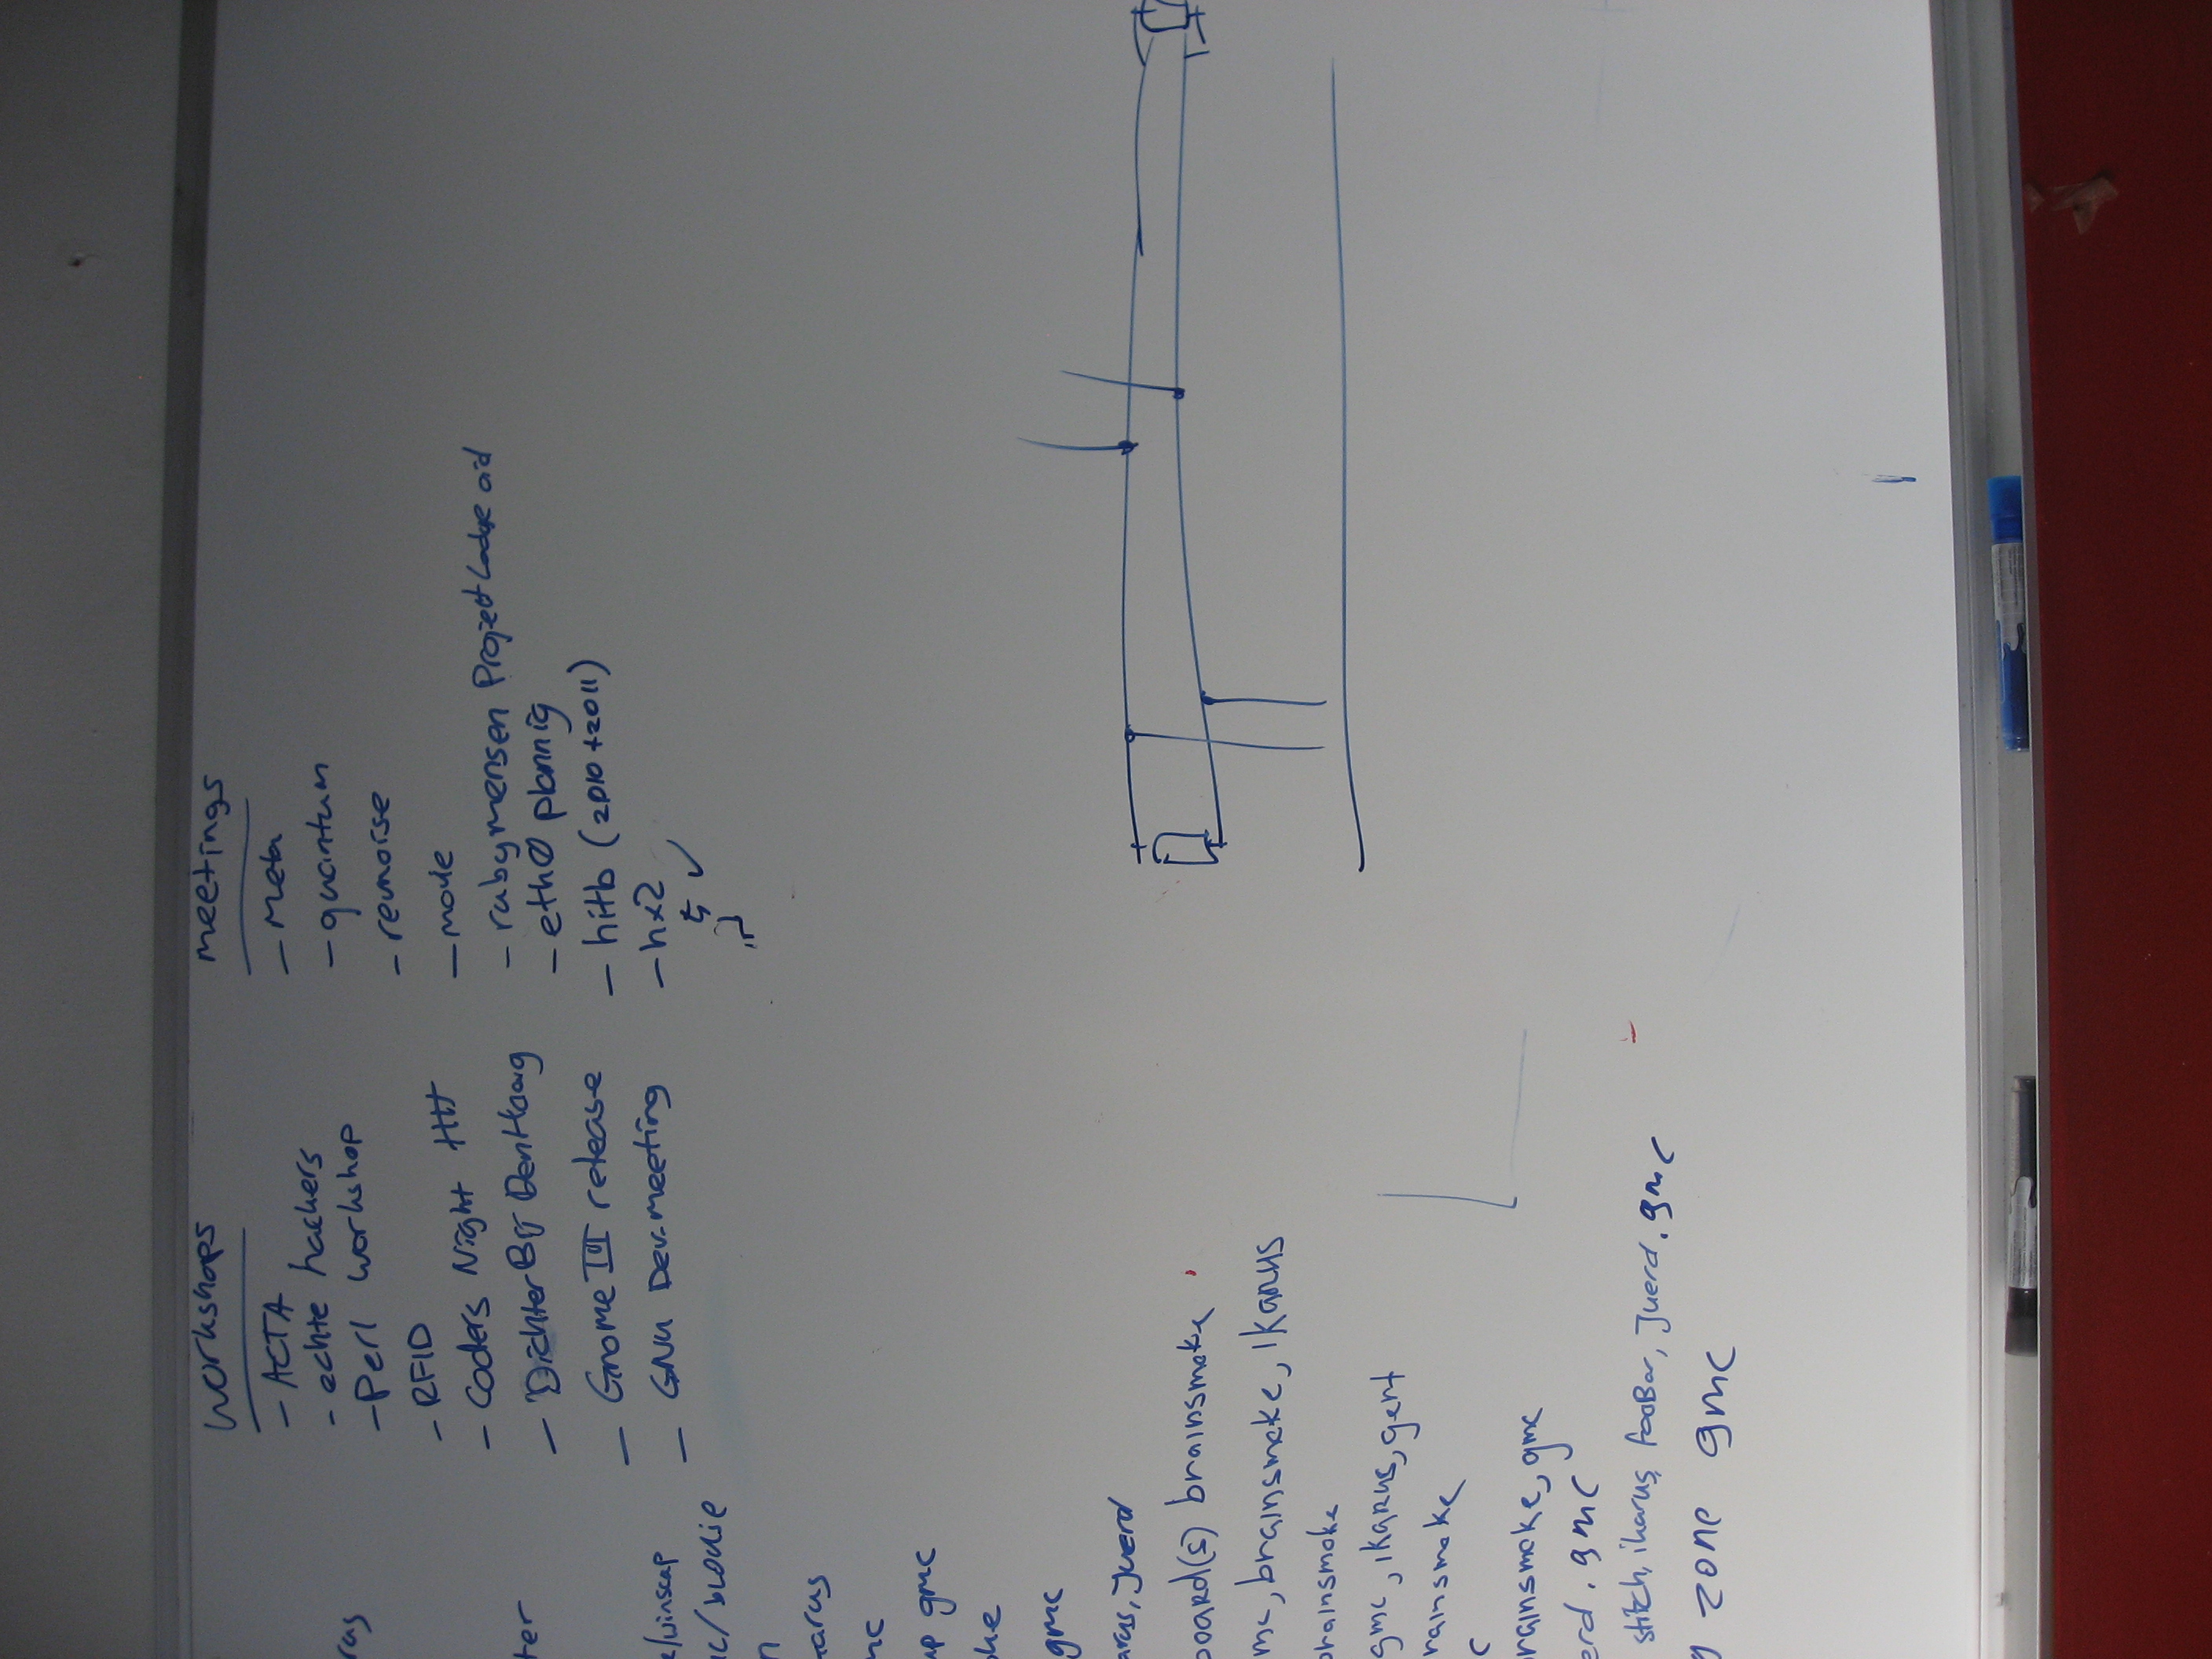 workshops
- ACTA
- echte hackers
- Perl workshop
- RFID
- Coders Night HH
- Dichter Bij Den Haag
- Gnome III release
- GNU Dev-meeting
meetings
- meta
- quantum
- revnoise
- movie
- rubymensen Project
- eth0 plannig
- hitb (2010 + 2011)
- hx2
rus
ter
e/winscap
n
arus
nc
up gmc
oke
gmc
arus, Juerd
board(s) brainsmoke
mc, brainsmoke, Ikarus
brainsmoke
gmc, ikarus, gent
rainsmoke
c
rainsmoke, gmc
erd. gmc
stitch, ikarus, fooBar, Juerd. gmc
g zone gmc